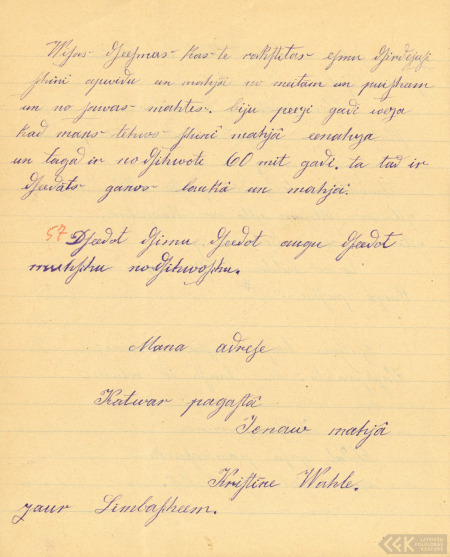 Wisas dseesmas kas te rakstitas esmu dsirdejusi
schini apwidu un mahjâ no meitam un puischam
un no sawas mahtes. biju peezi gadi weza
kad mans tehws schini mahjâ eenahza
un tagad ir nodsihwots 60 mit gadi. ta tad ir
dseedats ganos laukâ un mahjâ.
57 Dseedot dsimu dseedot augu dseedot
muhschu nodsihwoschu.
Mana adrese
Katwar pagastâ
Jenaw mahjâ
Kristine Wahle.
zaur Limbascheem.
LATVIEŠU FOLKLORAS KRĀTUVE